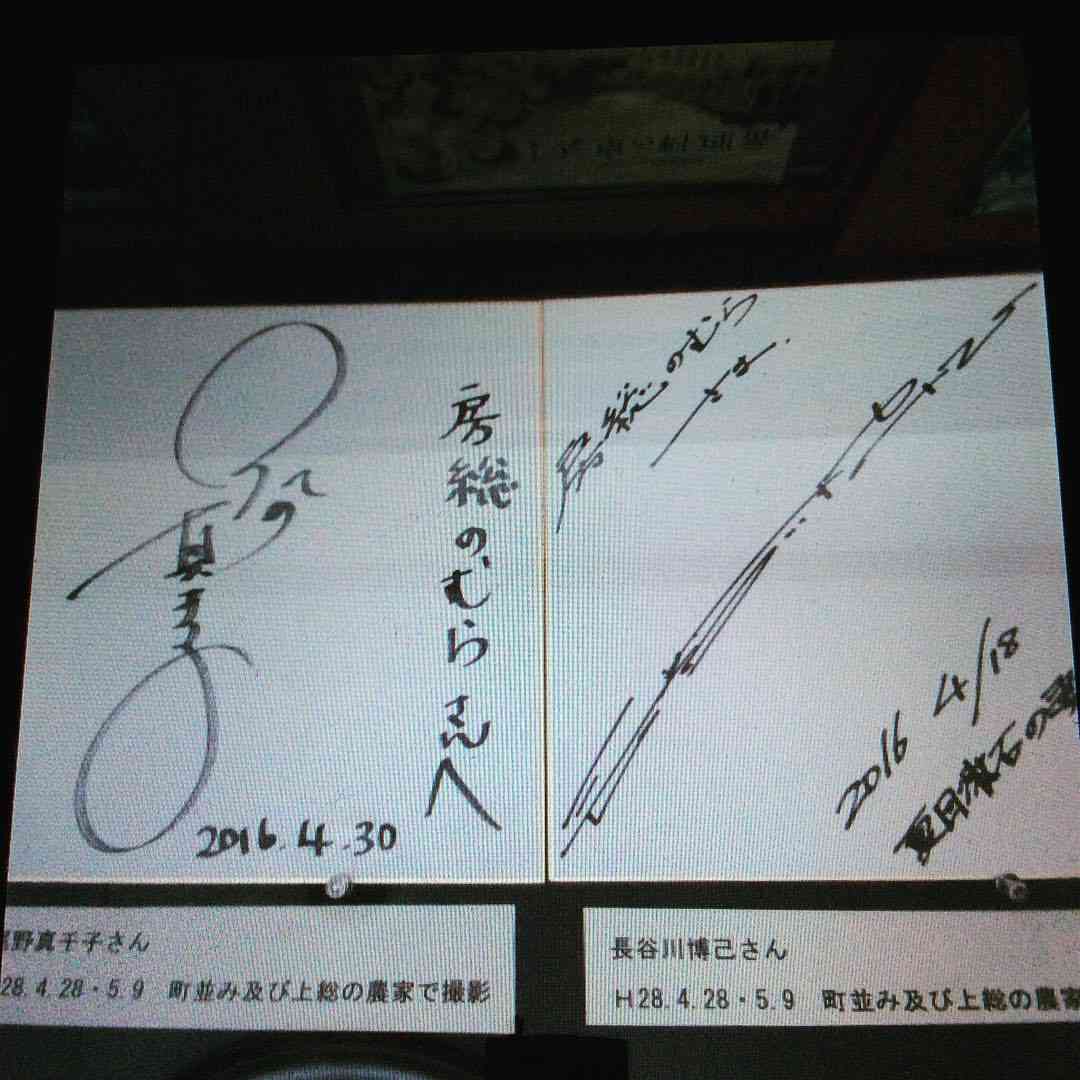 房総のむらさんへ
真千子
2016.4.30
房総のむら
さま.
2016 4/18
夏目漱石の
野真千子さん
28.4.28・5.9 町並み及び上総の農家で撮影
長谷川博己さん
H28.4.28・5.9 町並み及び上総の農家